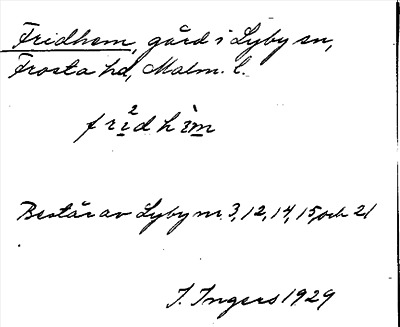 Fridhem, gård i Lyby sn,
Frosta hd, Malm. l.
Består av Lyby nr 3, 12, 14, 15, och 21
I. Ingers 1929